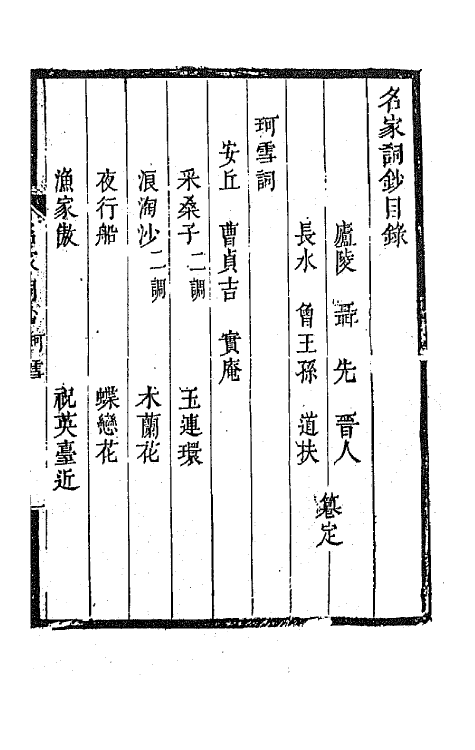 名家詞鈔目錄
廬陵 聶先 晋人
長水 曾王孫 道扶
纂定
珂雪詞
安丘 曹貞吉 實庵
采桑子二調 玉連環
浪淘沙二調 木蘭花
夜行船 蝶戀花
漁家傲 祝英臺近